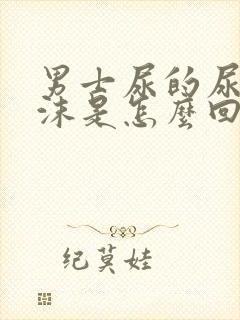 男士尿的尿
沫是怎麼回
纪莫娃